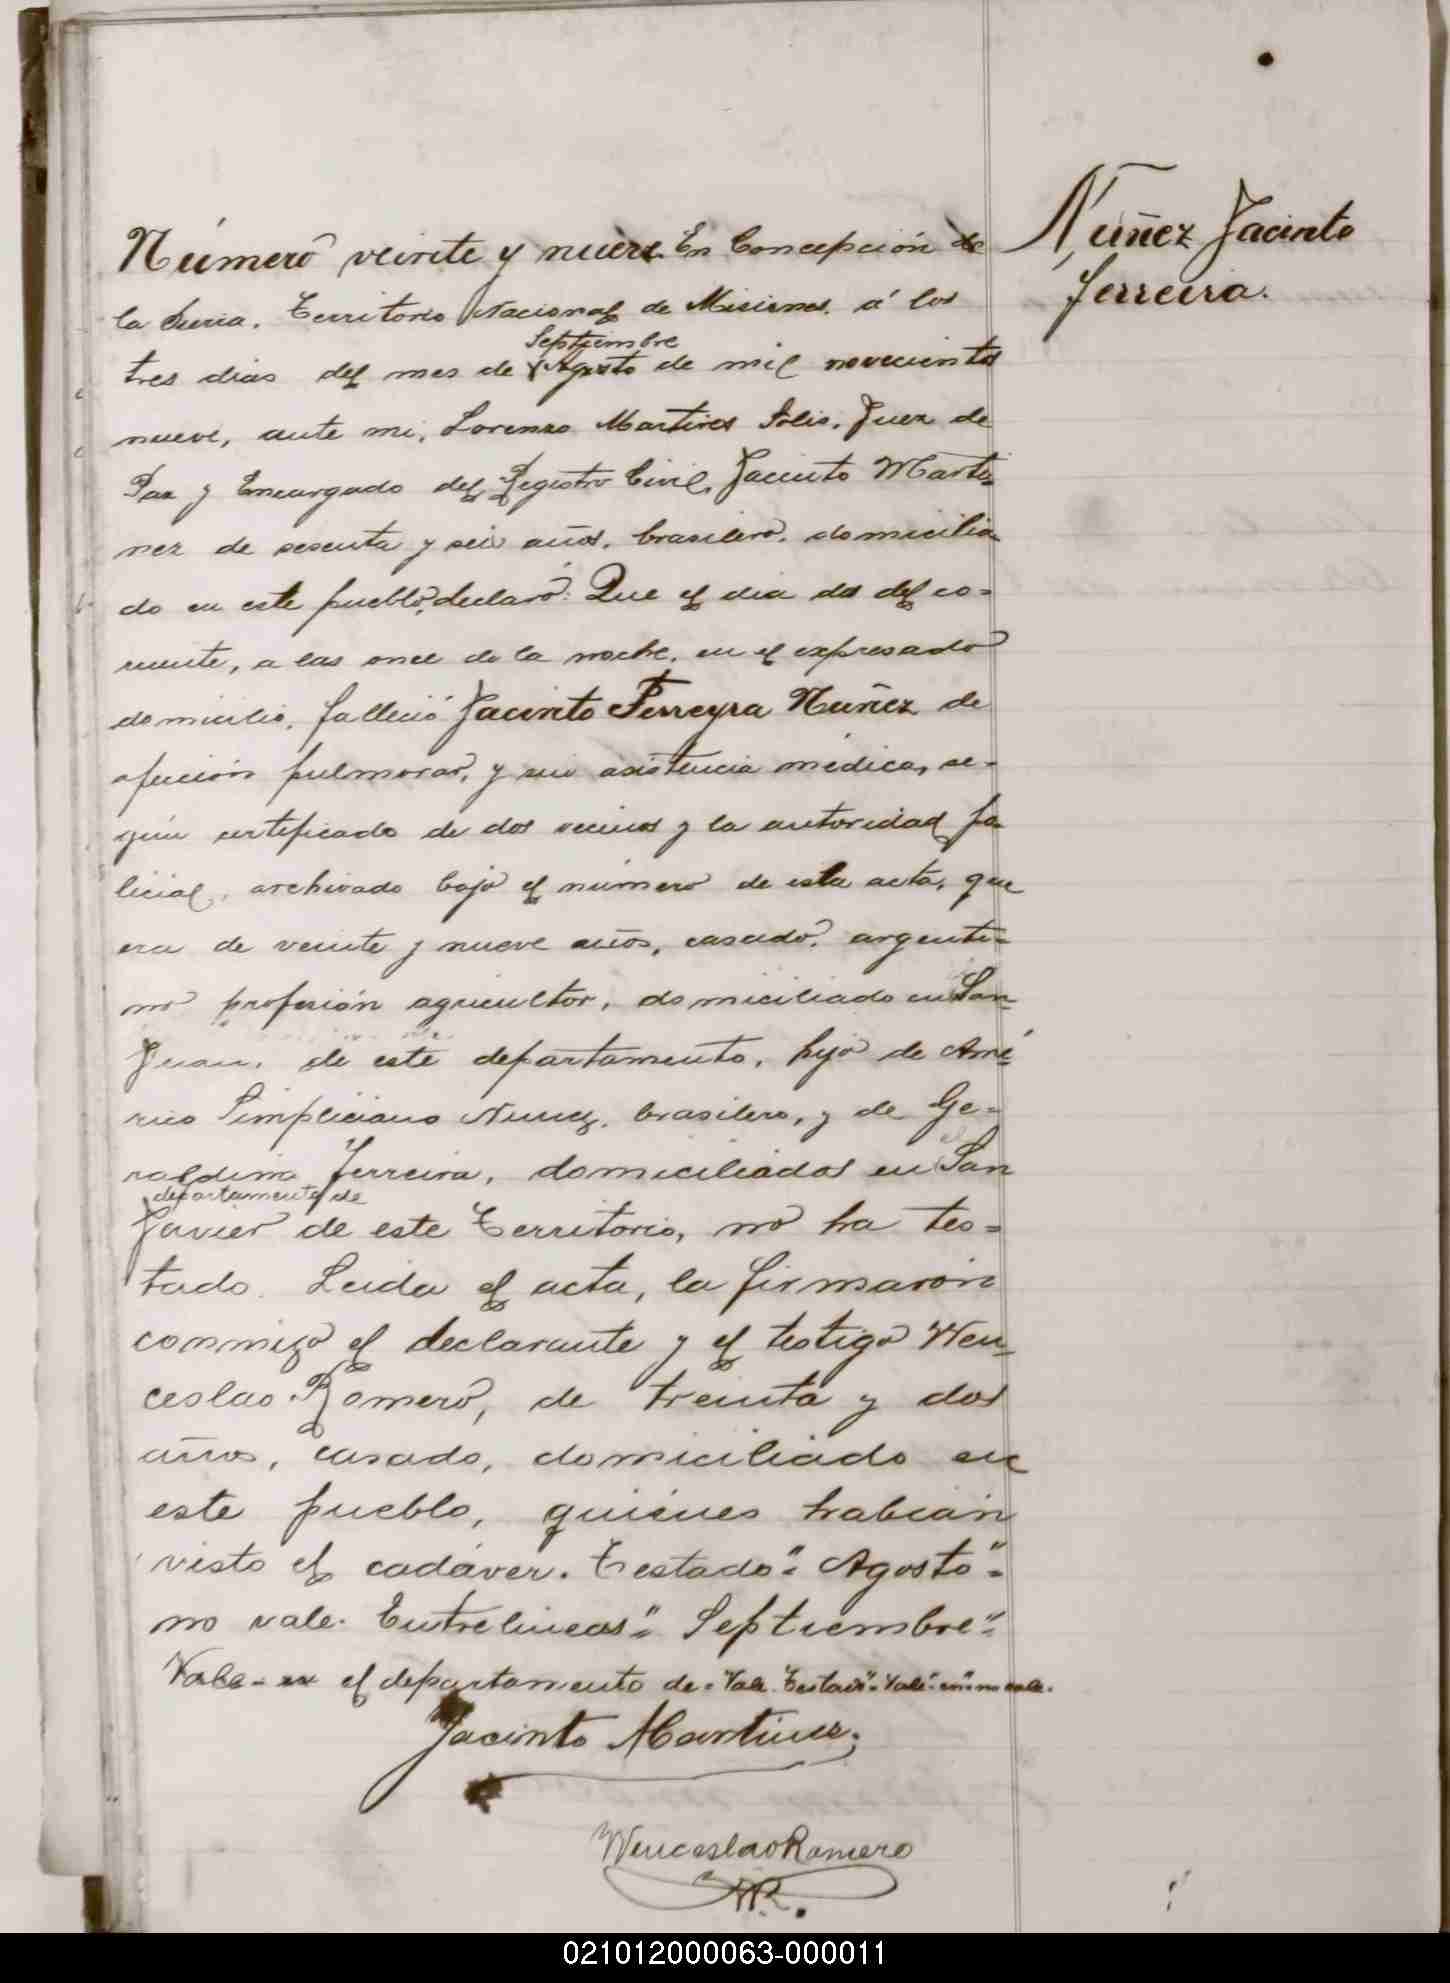 Núñez Jacinto
Ferreira.
Número veinte y nueve. En Concepción de
la Sierra, Territorio Nacional de Misiones, á los
Septiembre
tres dias del mes de Agosto de mil novecientos
nueve, ante mi, Lorenzo Martires Solis, Juez de
Paz y Encargado del Registro Civil, Jacinto Marti-
nez de sesenta y seis años, brasilero, domicilia
do en este pueblo, declaró: Que el dia dos del co-
rriente, a las once de la noche, en el expresado
domicilio, falleció Jacinto Ferreyra Nuñez de
afección pulmonar, y sin asistencia médica, se-
gún certificado de dos vecinos y la autoridad po
licial, archivado bajo el número de esta acta, que
era de veinte y nueve años, casado, argenti-
no profesión agricultor, domiciliado en San
Juan, de este departamento, hijo de Amé-
rico Simpliciano Nunez, brasilero, y de Ge-
raldina Ferreira, domiciliados en San
departamento de
Javier de este Territorio, no ha tes-
tado. Leida el acta, la firmaron
conmigo el declarante y el testigo Wen-
ceslao Romero, de treinta y dos
años, casado, domiciliado en
este pueblo, quiénes habian
visto el cadáver. Testado "Agosto"-
no vale. Entrelineas "Septiembre"
Vale - el departamento de - Vale. Testado "Vale" "en" no vale.
Jacinto Martinez
Wenceslao Romero
W.R.
021012000063-000011